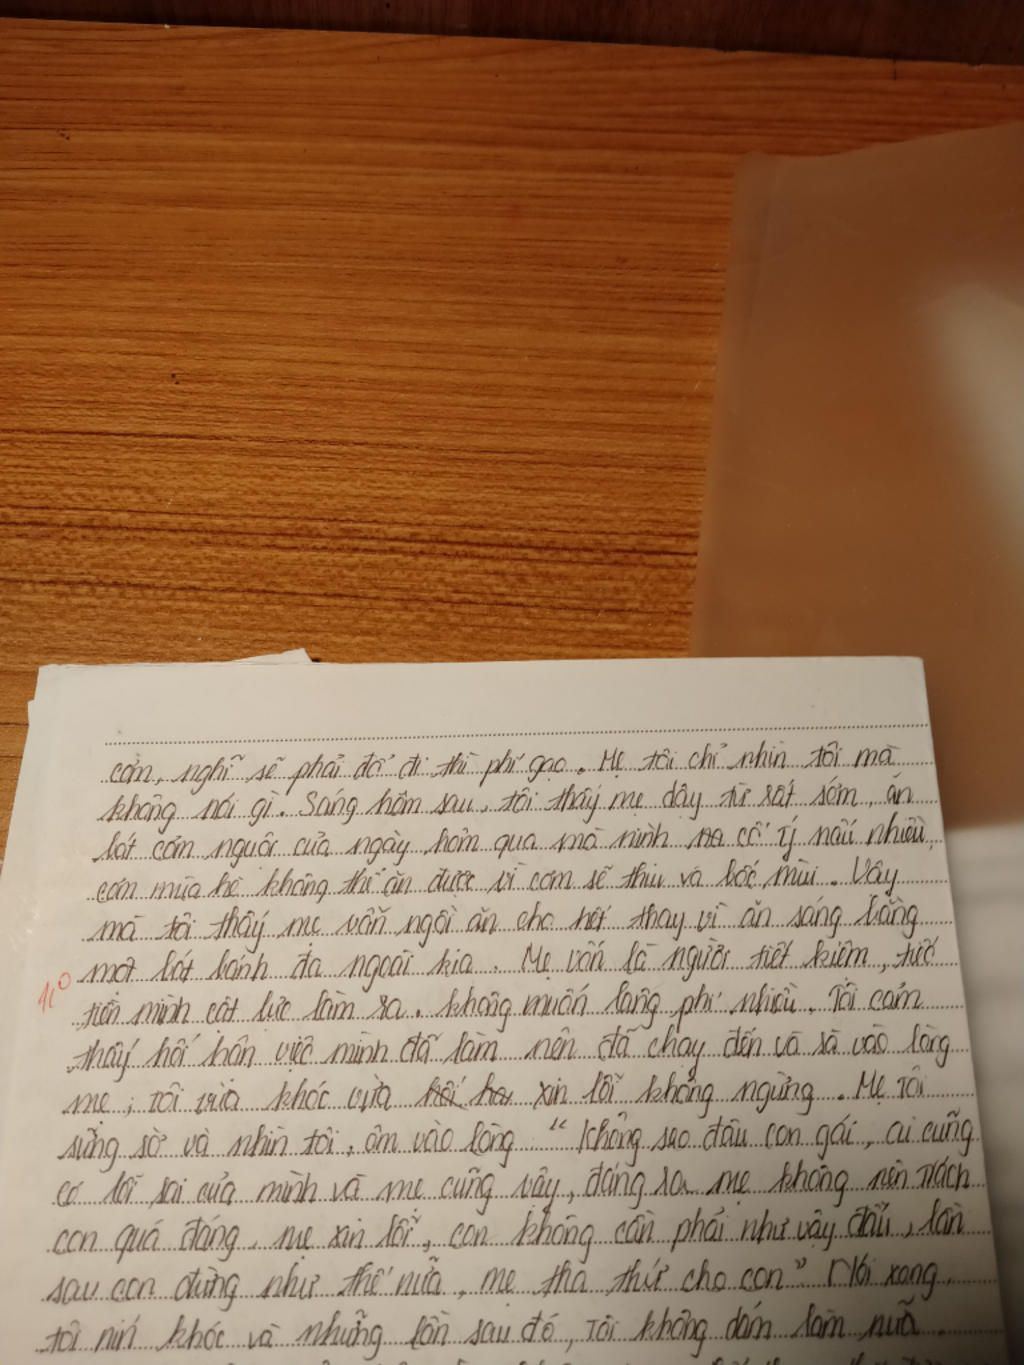 cơm, nghĩ sẽ phải đổ đi thì phí gạo. Mẹ tôi chỉ nhìn tôi mà
không nói gì. Sáng hôm sau, tôi thấy mẹ dậy từ rất sớm, ăn
bát cơm nguội của ngày hôm qua mà mình cố ý nấu nhiều,
cơm mùa hè không thể ăn được vì cơm sẽ thiu và bốc mùi. Vậy
mà tôi thấy mẹ vẫn ngồi ăn cho hết thay vì ăn sáng bằng
một bát bánh đa ngoài kia. Mẹ vốn là người tiết kiệm, tiếc
tiền mình cật lực làm ra, không muốn lãng phí nhiều. Tôi cảm
thấy hối hận việc mình đã làm nên đã chạy đến và sà vào lòng
mẹ, tôi vừa khóc vừa xin lỗi không ngừng. Mẹ tôi
sững sờ và nhìn tôi, ôm vào lòng “Không sao đâu con gái, ai cũng
có lỗi sai của mình và mẹ cũng vậy, đáng ra mẹ không nên trách
con quá đáng, mẹ xin lỗi, con không cần phải như vậy đâu, lần
sau con đừng như thế nữa, mẹ tha thứ cho con” Nói xong,
tôi nín khóc và những lần sau đó, tôi không dám làm nữa.